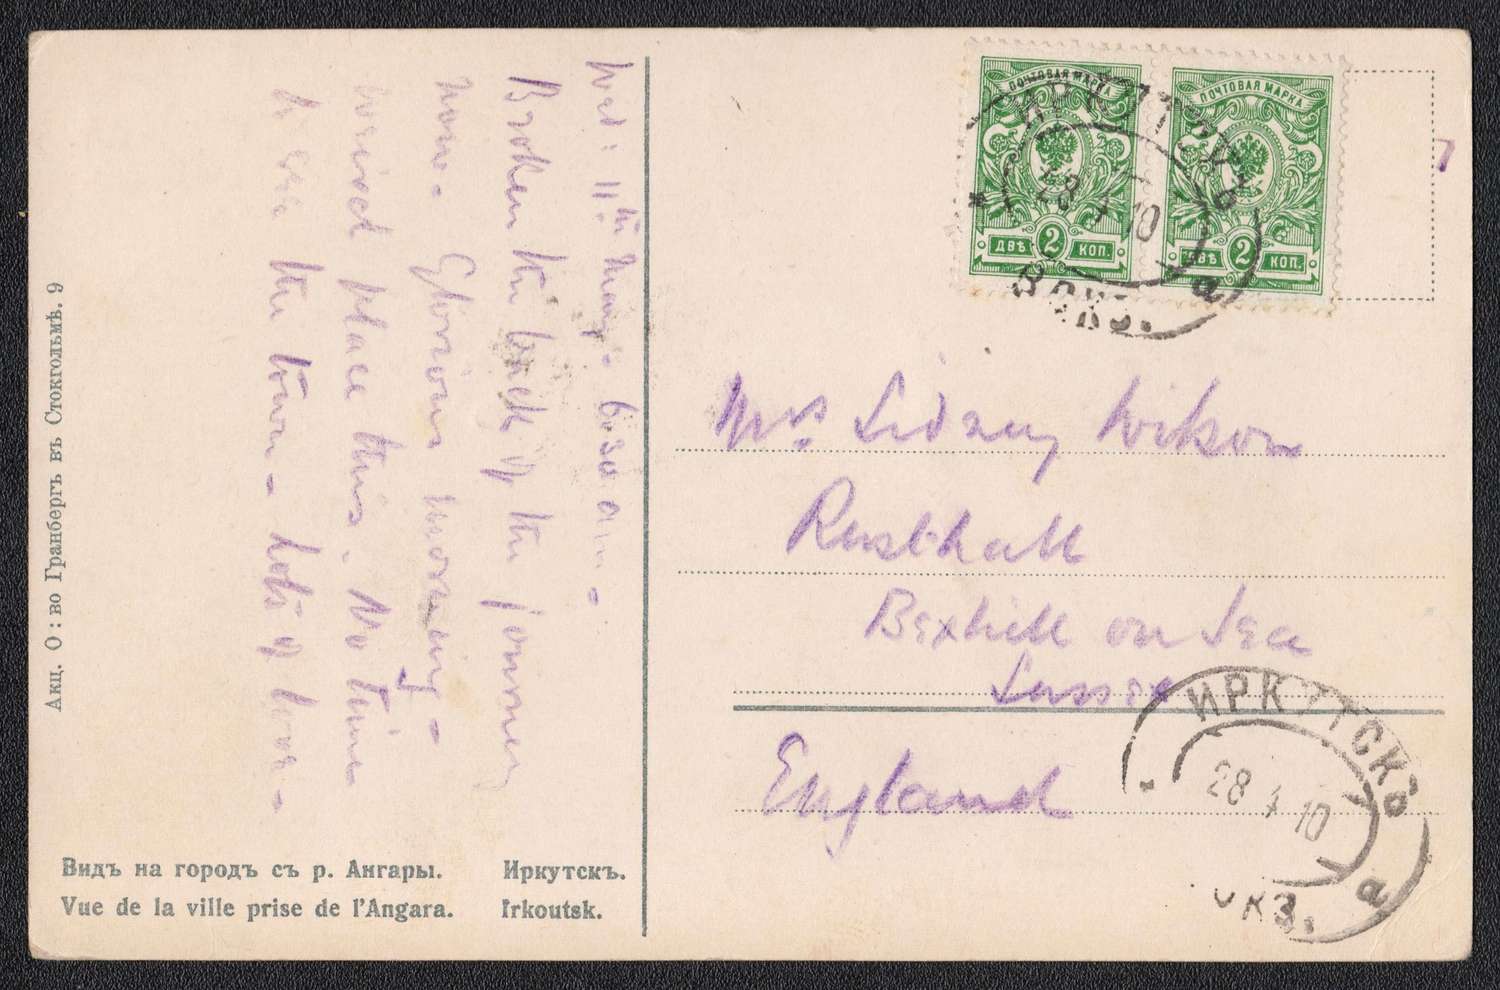 Wed: 11th May - 6.30 am -
Broken the back of the journey
now. Glorious morning -
weird place this. No time
to see the town - lots of love -
Акц. О: во Гранбергъ въ Стокгольмѣ. 9
Видъ на городъ съ р. Ангары. Иркутскъ.
Vue de la ville prise de l'Angara. Irkoutsk.
ПОЧТОВАЯ МАРКА
ДВѢ 2 КОП.
ПОЧТОВАЯ МАРКА
ДВѢ 2 КОП.
ИРКУТСКЪ
28 4 10
ВОКЗ. а
Mrs Sidney Wilson
Rusthall
Bexhill on Sea
Sussex
England
ИРКУТСКЪ
28 4 10
ОКЗ. а